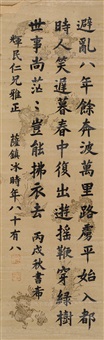 避亂八年餘奔波萬里路虜平始入都
時人笑遲暮春中復出遊搖鞭穿綠樹
世事尚茫〻豈能拂衣去 丙戌秋書希
輝民仁兄雅正 薩鎮冰時年八十有八